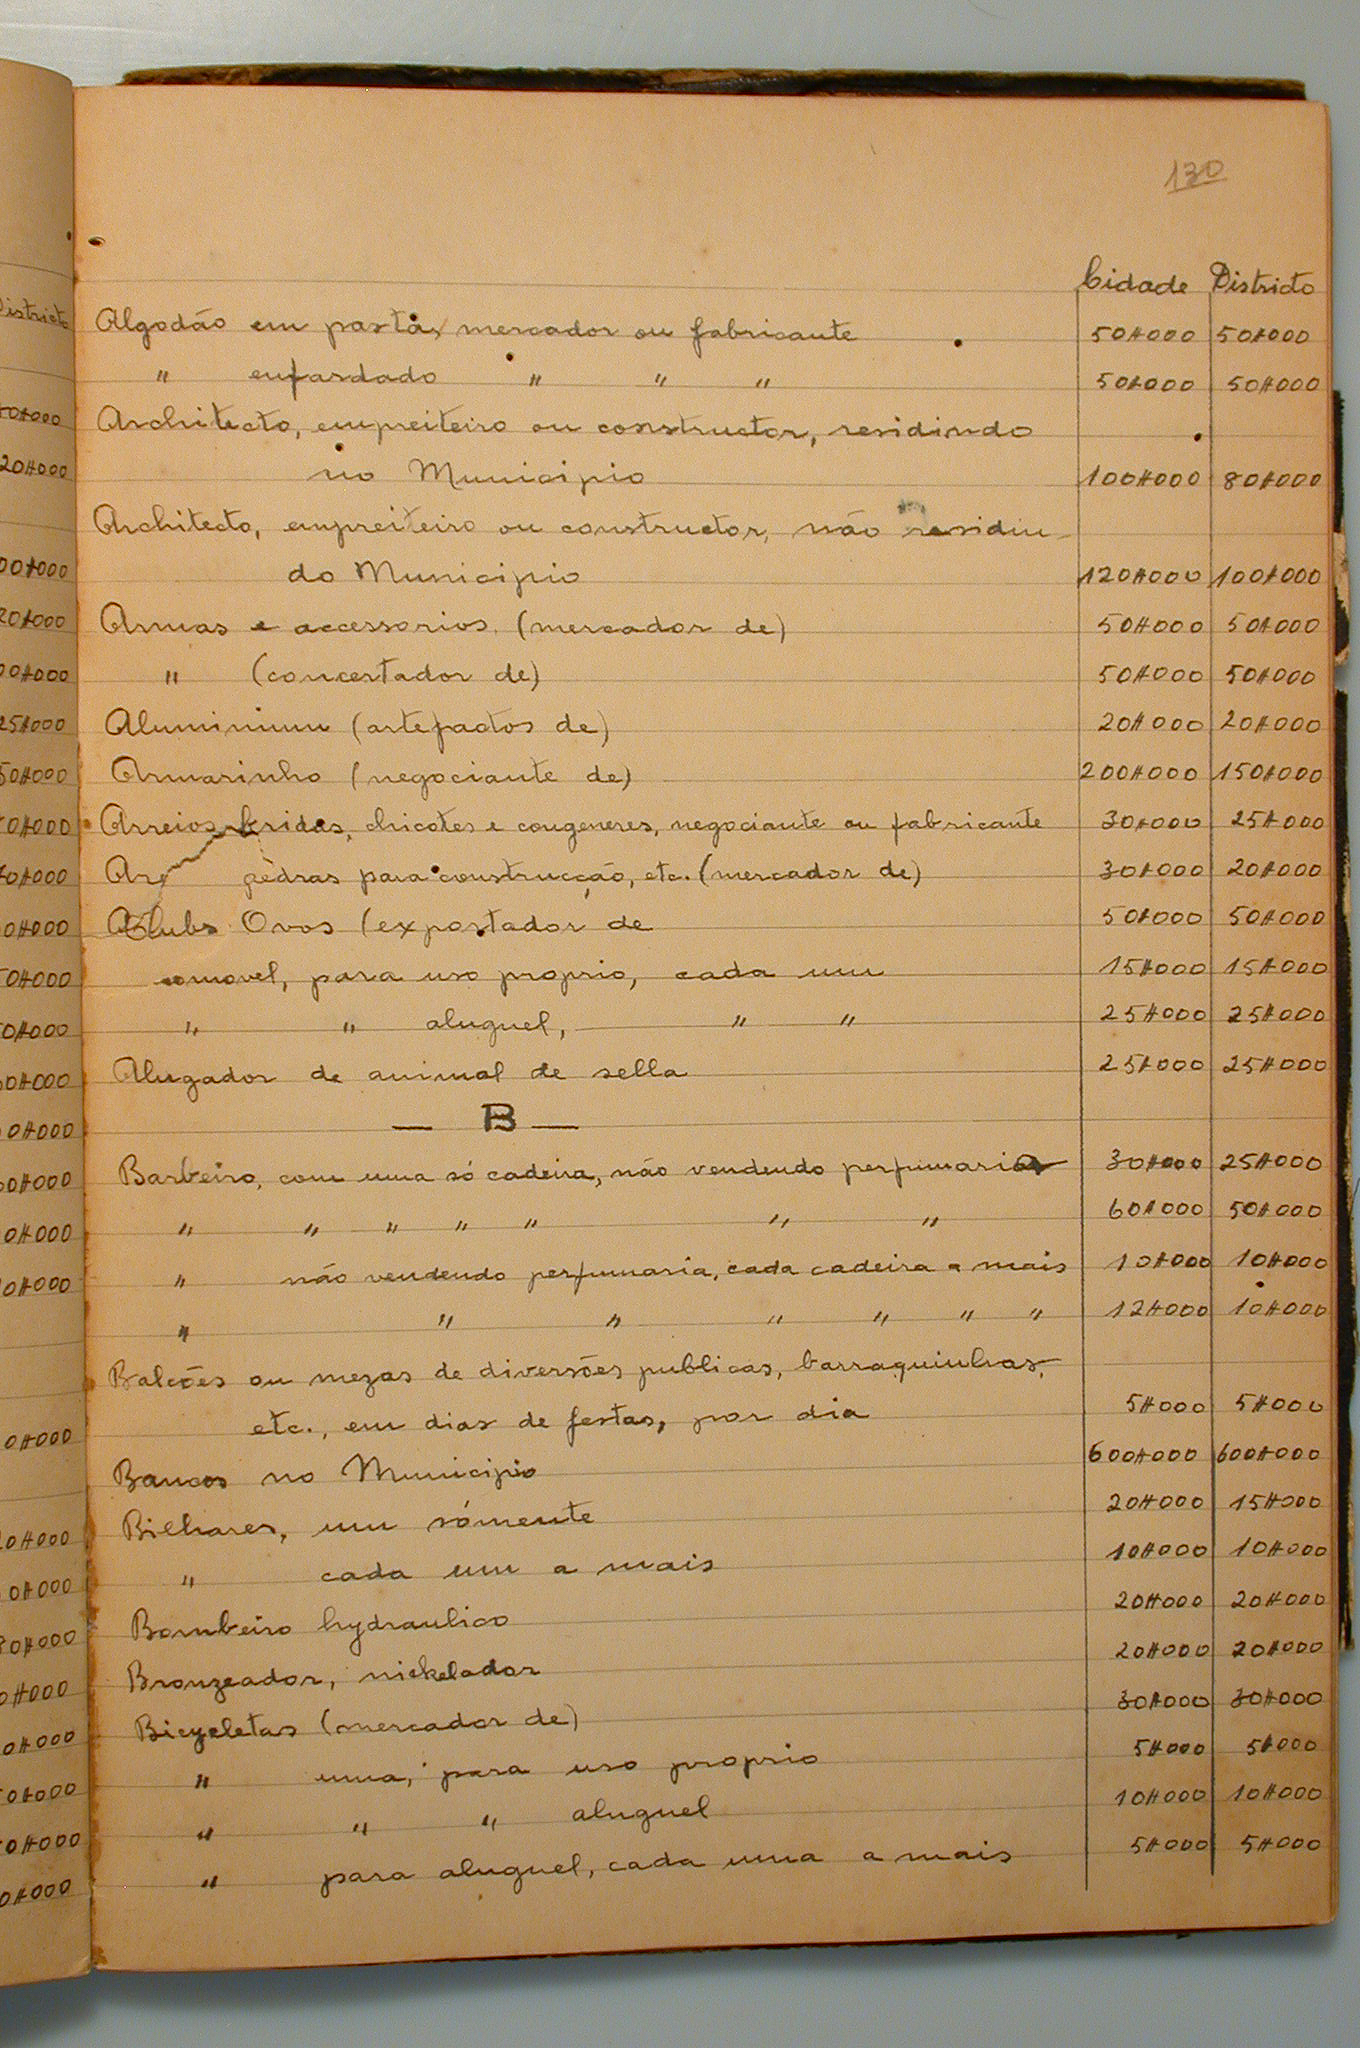 130
Cidade Districto
Algodão em pasta, mercador ou fabricante 50$000 50$000
" enfardado " " " 50$000 50$000
Architecto, empreiteiro ou constructor, residindo
no Municipio 100$000 80$000
Architecto, empreiteiro ou constructor, não residin-
do Municipio 120$000 100$000
Armas e accessorios (mercador de) 50$000 50$000
" (concertador de) 50$000 50$000
Aluminium (artefactos de) 20$000 20$000
Armarinho (negociante de) 200$000 150$000
Arreios, bridas, chicotes e congeneres, negociante ou fabricante 30$000 25$000
pedras para construcção, etc. (mercador de) 30$000 20$000
Ovos (exportador de 50$000 50$000
omovel, para uso proprio, cada um 15$000 15$000
" " aluguel, " " 25$000 25$000
Alugador de animal de sella 25$000 25$000
— B —
Barbeiro, com uma só cadeira, não vendendo perfumaria 30$000 25$000
" " " " " " " 60$000 50$000
" não vendendo perfumaria, cada cadeira a mais 10$000 10$000
" " " " " " " 12$000 10$000
Balcões ou mezas de diversões publicas, barraquinhas,
etc., em dias de festas, por dia 5$000 5$000
Bancos no Municipio 600$000 600$000
Bilhares, um sómente 20$000 15$000
" cada um a mais 10$000 10$000
Bombeiro hydraulico 20$000 20$000
Bronzeador, nickelador 20$000 20$000
Bicycletas (mercador de) 30$000 30$000
" uma, para uso proprio 5$000 5$000
" " " aluguel 10$000 10$000
" para aluguel, cada uma a mais 5$000 5$000